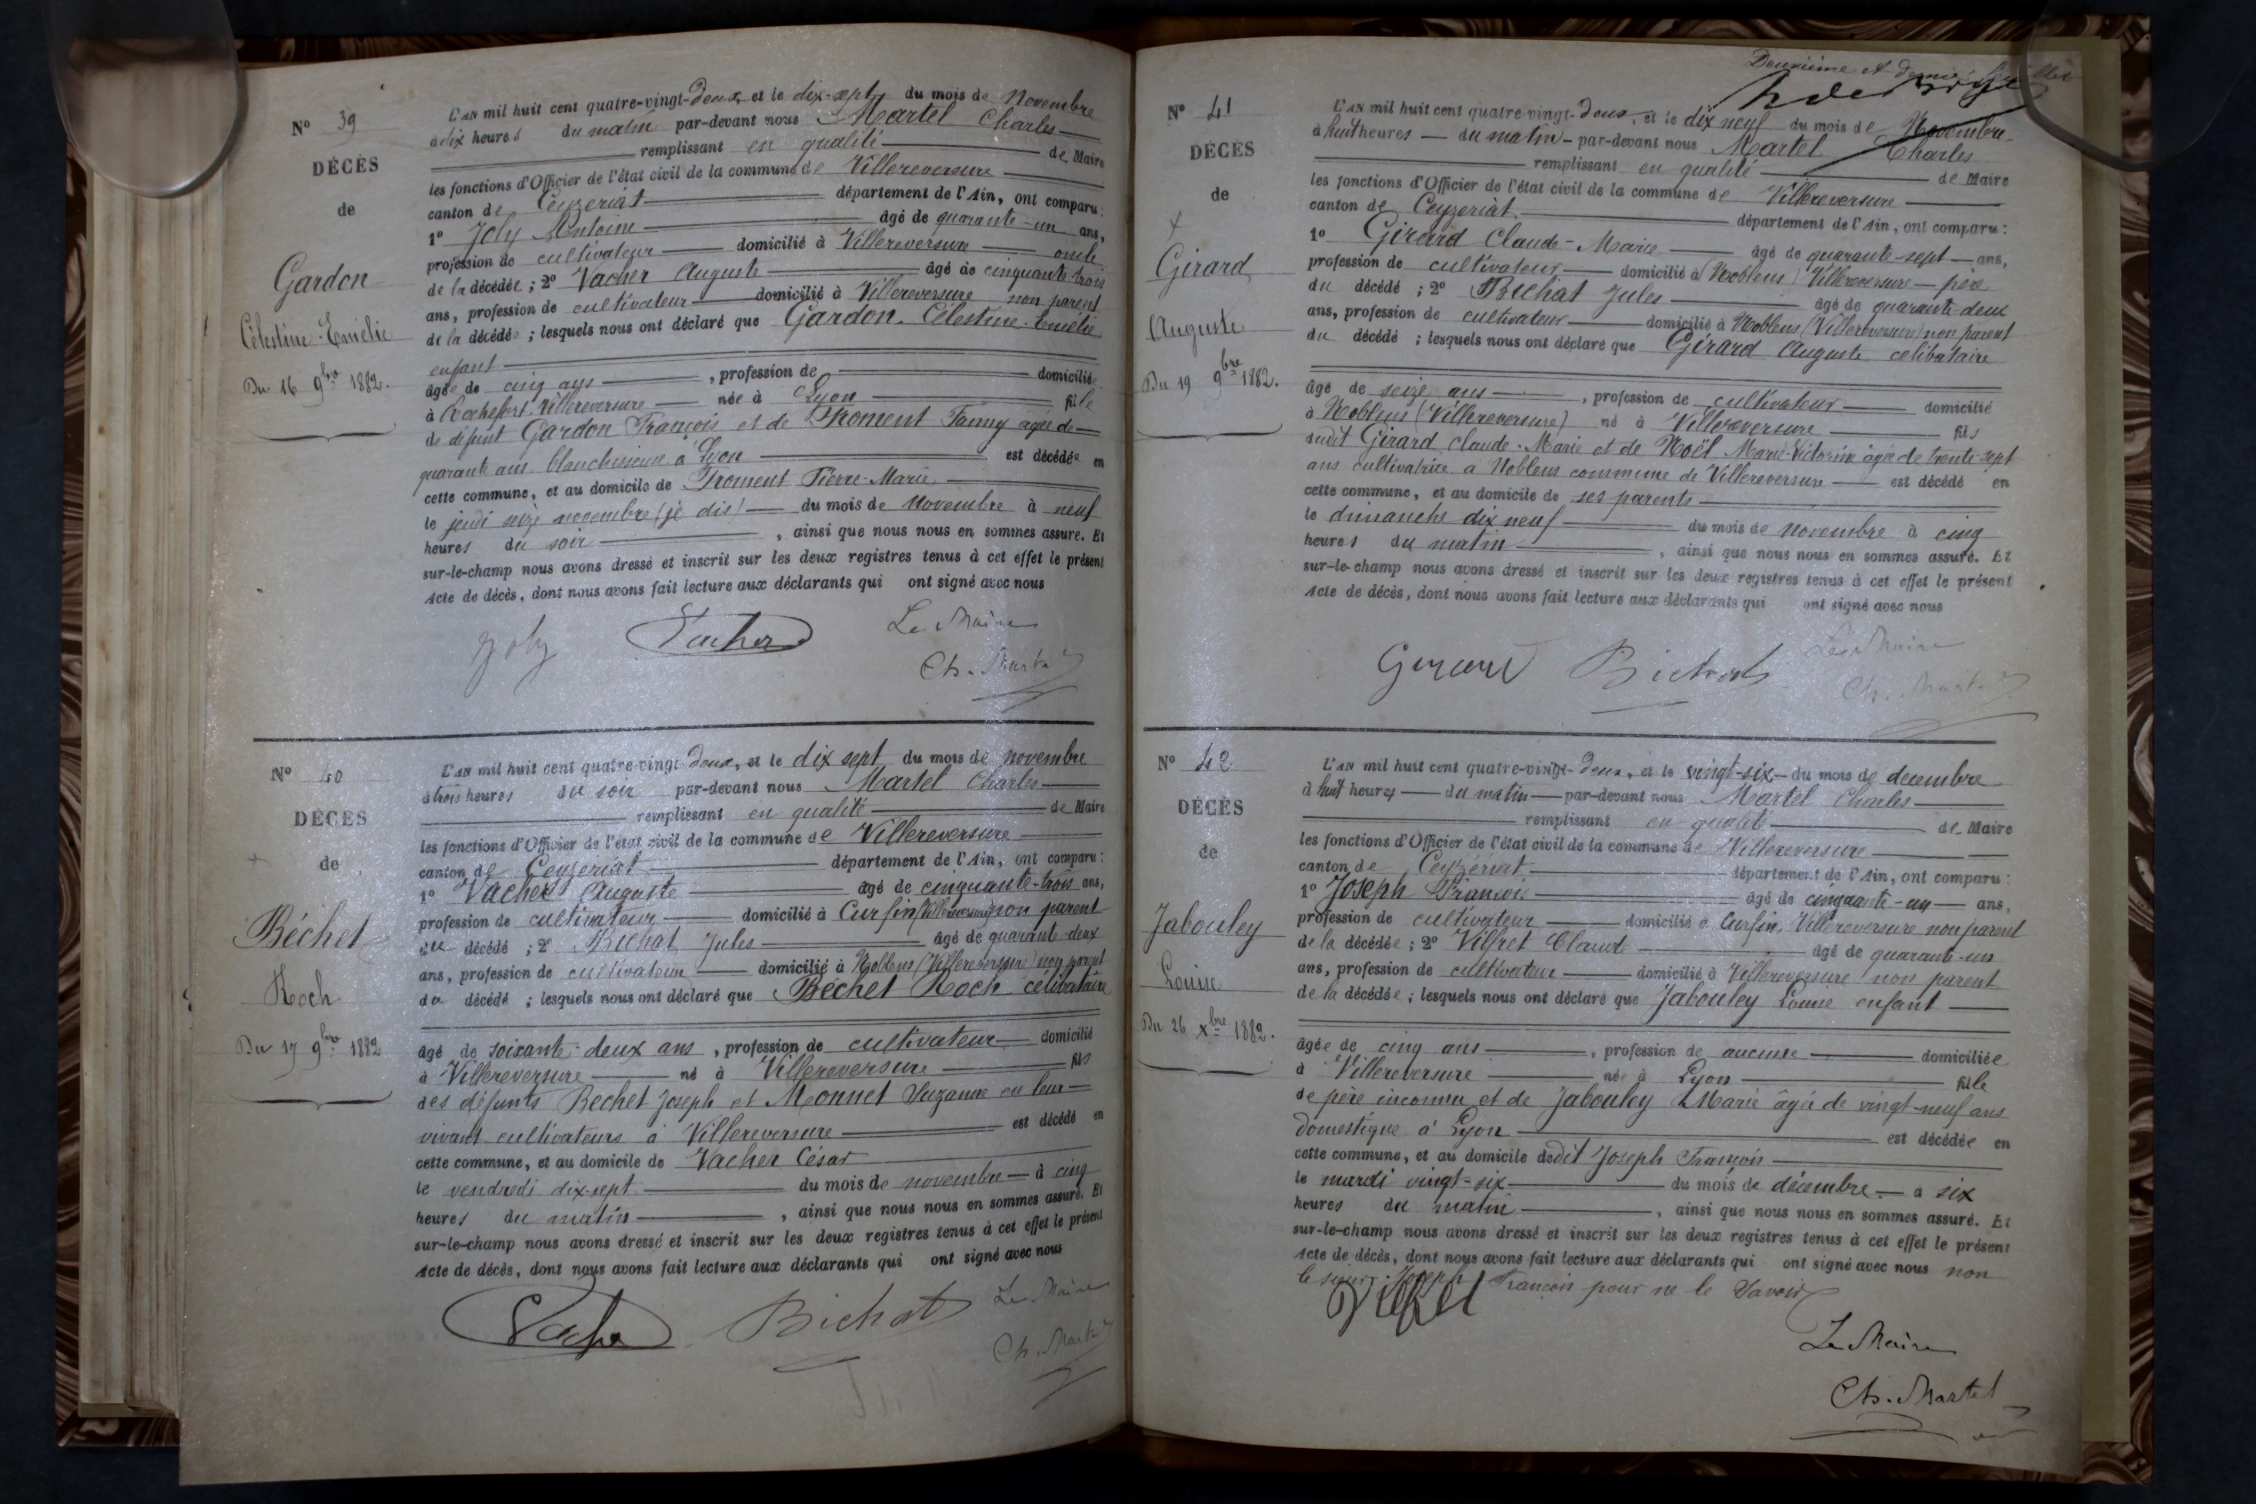 N° 39
DÉCÈS
de
Gardon
Célestine-Emélie
Du 16 9bre 1882.
L'AN mil huit cent quatre-vingt-deux, et le dix-sept du mois de Novembre
à dix heures du matin par-devant nous Martel Charles
remplissant en qualité de Maire
les fonctions d'Officier de l'état civil de la commune de Villereversure
canton de Ceyzeriat département de l'Ain, ont comparu :
1° Joly Antoine âgé de quarante-un ans,
profession de cultivateur domicilié à Villereversure oncle
de la décédée ; 2° Vacher Auguste âgé de cinquante-trois
ans, profession de cultivateur domicilié à Villereversure non parent
de la décédée ; lesquels nous ont déclaré que Gardon Célestine-Emélie
enfant
âgée de cinq ans , profession de domiciliée
à Rochefort Villereversure née à Lyon fille
de défunt Gardon François et de Froment Fanny agée de
quarante ans blanchisseuse à Lyon est décédée en
cette commune, et au domicile de Froment Pierre-Marie
le jeudi seize novembre (je dis) du mois de Novembre à neuf
heures du soir , ainsi que nous nous en sommes assuré. Et
sur-le-champ nous avons dressé et inscrit sur les deux registres tenus à cet effet le présent
Acte de décès, dont nous avons fait lecture aux déclarants qui ont signé avec nous
Joly Vacher Le Maire
Ch. Martel
N° 40
DÉCÈS
de
Béchet
Roch
Du 17 9bre 1882
L'AN mil huit cent quatre-vingt-deux, et le dix sept du mois de novembre
à trois heures du soir par-devant nous Martel Charles
remplissant en qualité de Maire
les fonctions d'Officier de l'état civil de la commune de Villereversure
canton de Ceyzeriat département de l'Ain, ont comparu :
1° Vacher Auguste âgé de cinquante-trois ans,
profession de cultivateur domicilié à Curfin (Villereversure) non parent
du décédé ; 2° Bichat Jules âgé de quarante-deux
ans, profession de cultivateur domicilié à Noblens (Villereversure) non parent
du décédé ; lesquels nous ont déclaré que Béchet Roch célibataire
âgé de soixante-deux ans , profession de cultivateur domicilié
à Villereversure né à Villereversure fils
des défunts Bechet Joseph et Monnet Suzanne en leur
vivant cultivateurs à Villereversure est décédé en
cette commune, et au domicile de Vacher César
le vendredi dix-sept du mois de novembre à cinq
heures du matin , ainsi que nous nous en sommes assuré. Et
sur-le-champ nous avons dressé et inscrit sur les deux registres tenus à cet effet le présent
Acte de décès, dont nous avons fait lecture aux déclarants qui ont signé avec nous
Vacher Bichat Le Maire
Ch. Martel
Deuxième et dernier feuillet
N° 41
DÉCÈS
de
Girard
Auguste
Du 19 9bre 1882.
L'AN mil huit cent quatre-vingt-deux, et le dix neuf du mois de Novembre
à huit heures du matin par-devant nous Martel Charles
remplissant en qualité de Maire
les fonctions d'Officier de l'état civil de la commune de Villereversure
canton de Ceyzeriat département de l'Ain, ont comparu :
1° Girard Claude-Marie âgé de quarante-sept ans,
profession de cultivateur domicilié à Noblens (Villereversure père
du décédé ; 2° Bichat Jules âgé de quarante-deux
ans, profession de cultivateur domicilié à Noblens (Villereversure) non parent
du décédé ; lesquels nous ont déclaré que Girard Auguste celibataire
âgé de seize ans , profession de cultivateur domicilié
à Noblens (Villereversure) né à Villereversure fils
dudit Girard Claude-Marie et de Noël Marie-Victorine agée de trente-sept
ans cultivatrice à Noblens commune de Villereversure est décédé en
cette commune, et au domicile de ses parents
le dimanche dix neuf du mois de novembre à cinq
heures du matin , ainsi que nous nous en sommes assuré. Et
sur-le-champ nous avons dressé et inscrit sur les deux registres tenus à cet effet le présent
Acte de décès, dont nous avons fait lecture aux déclarants qui ont signé avec nous
Girard Bichat Le Maire
Ch. Martel
N° 42
DÉCÈS
de
Jabouley
Louise
Du 26 Xbre 1882.
L'AN mil huit cent quatre-vingt-deux, et le vingt-six du mois de decembre
à huit heures du matin par-devant nous Martel Charles
remplissant en qualité de Maire
les fonctions d'Officier de l'état civil de la commune de Villereversure
canton de Ceyzériat département de l'Ain, ont comparu :
1° Joseph François âgé de cinquante-un ans,
profession de cultivateur domicilié à Curfin, Villereversure non parent
de la décédée ; 2° Vilfret Claude âgé de quarante-un
ans, profession de cultivateur domicilié à Villereversure non parent
de la décédée ; lesquels nous ont déclaré que Jabouley Louise enfant
âgée de cinq ans , profession de aucune domiciliée
à Villereversure née à Lyon fille
de père inconnu et de Jabouley Marie âgée de vingt-neuf ans
domestique à Lyon est décédée en
cette commune, et au domicile dudit Joseph François
le mardi vingt-six du mois de décembre à six
heures du matin , ainsi que nous nous en sommes assuré. Et
sur-le-champ nous avons dressé et inscrit sur les deux registres tenus à cet effet le présent
Acte de décès, dont nous avons fait lecture aux déclarants qui ont signé avec nous non
le sieur Joseph François pour ne le savoir
Vilfret
Le Maire
Ch. Martel